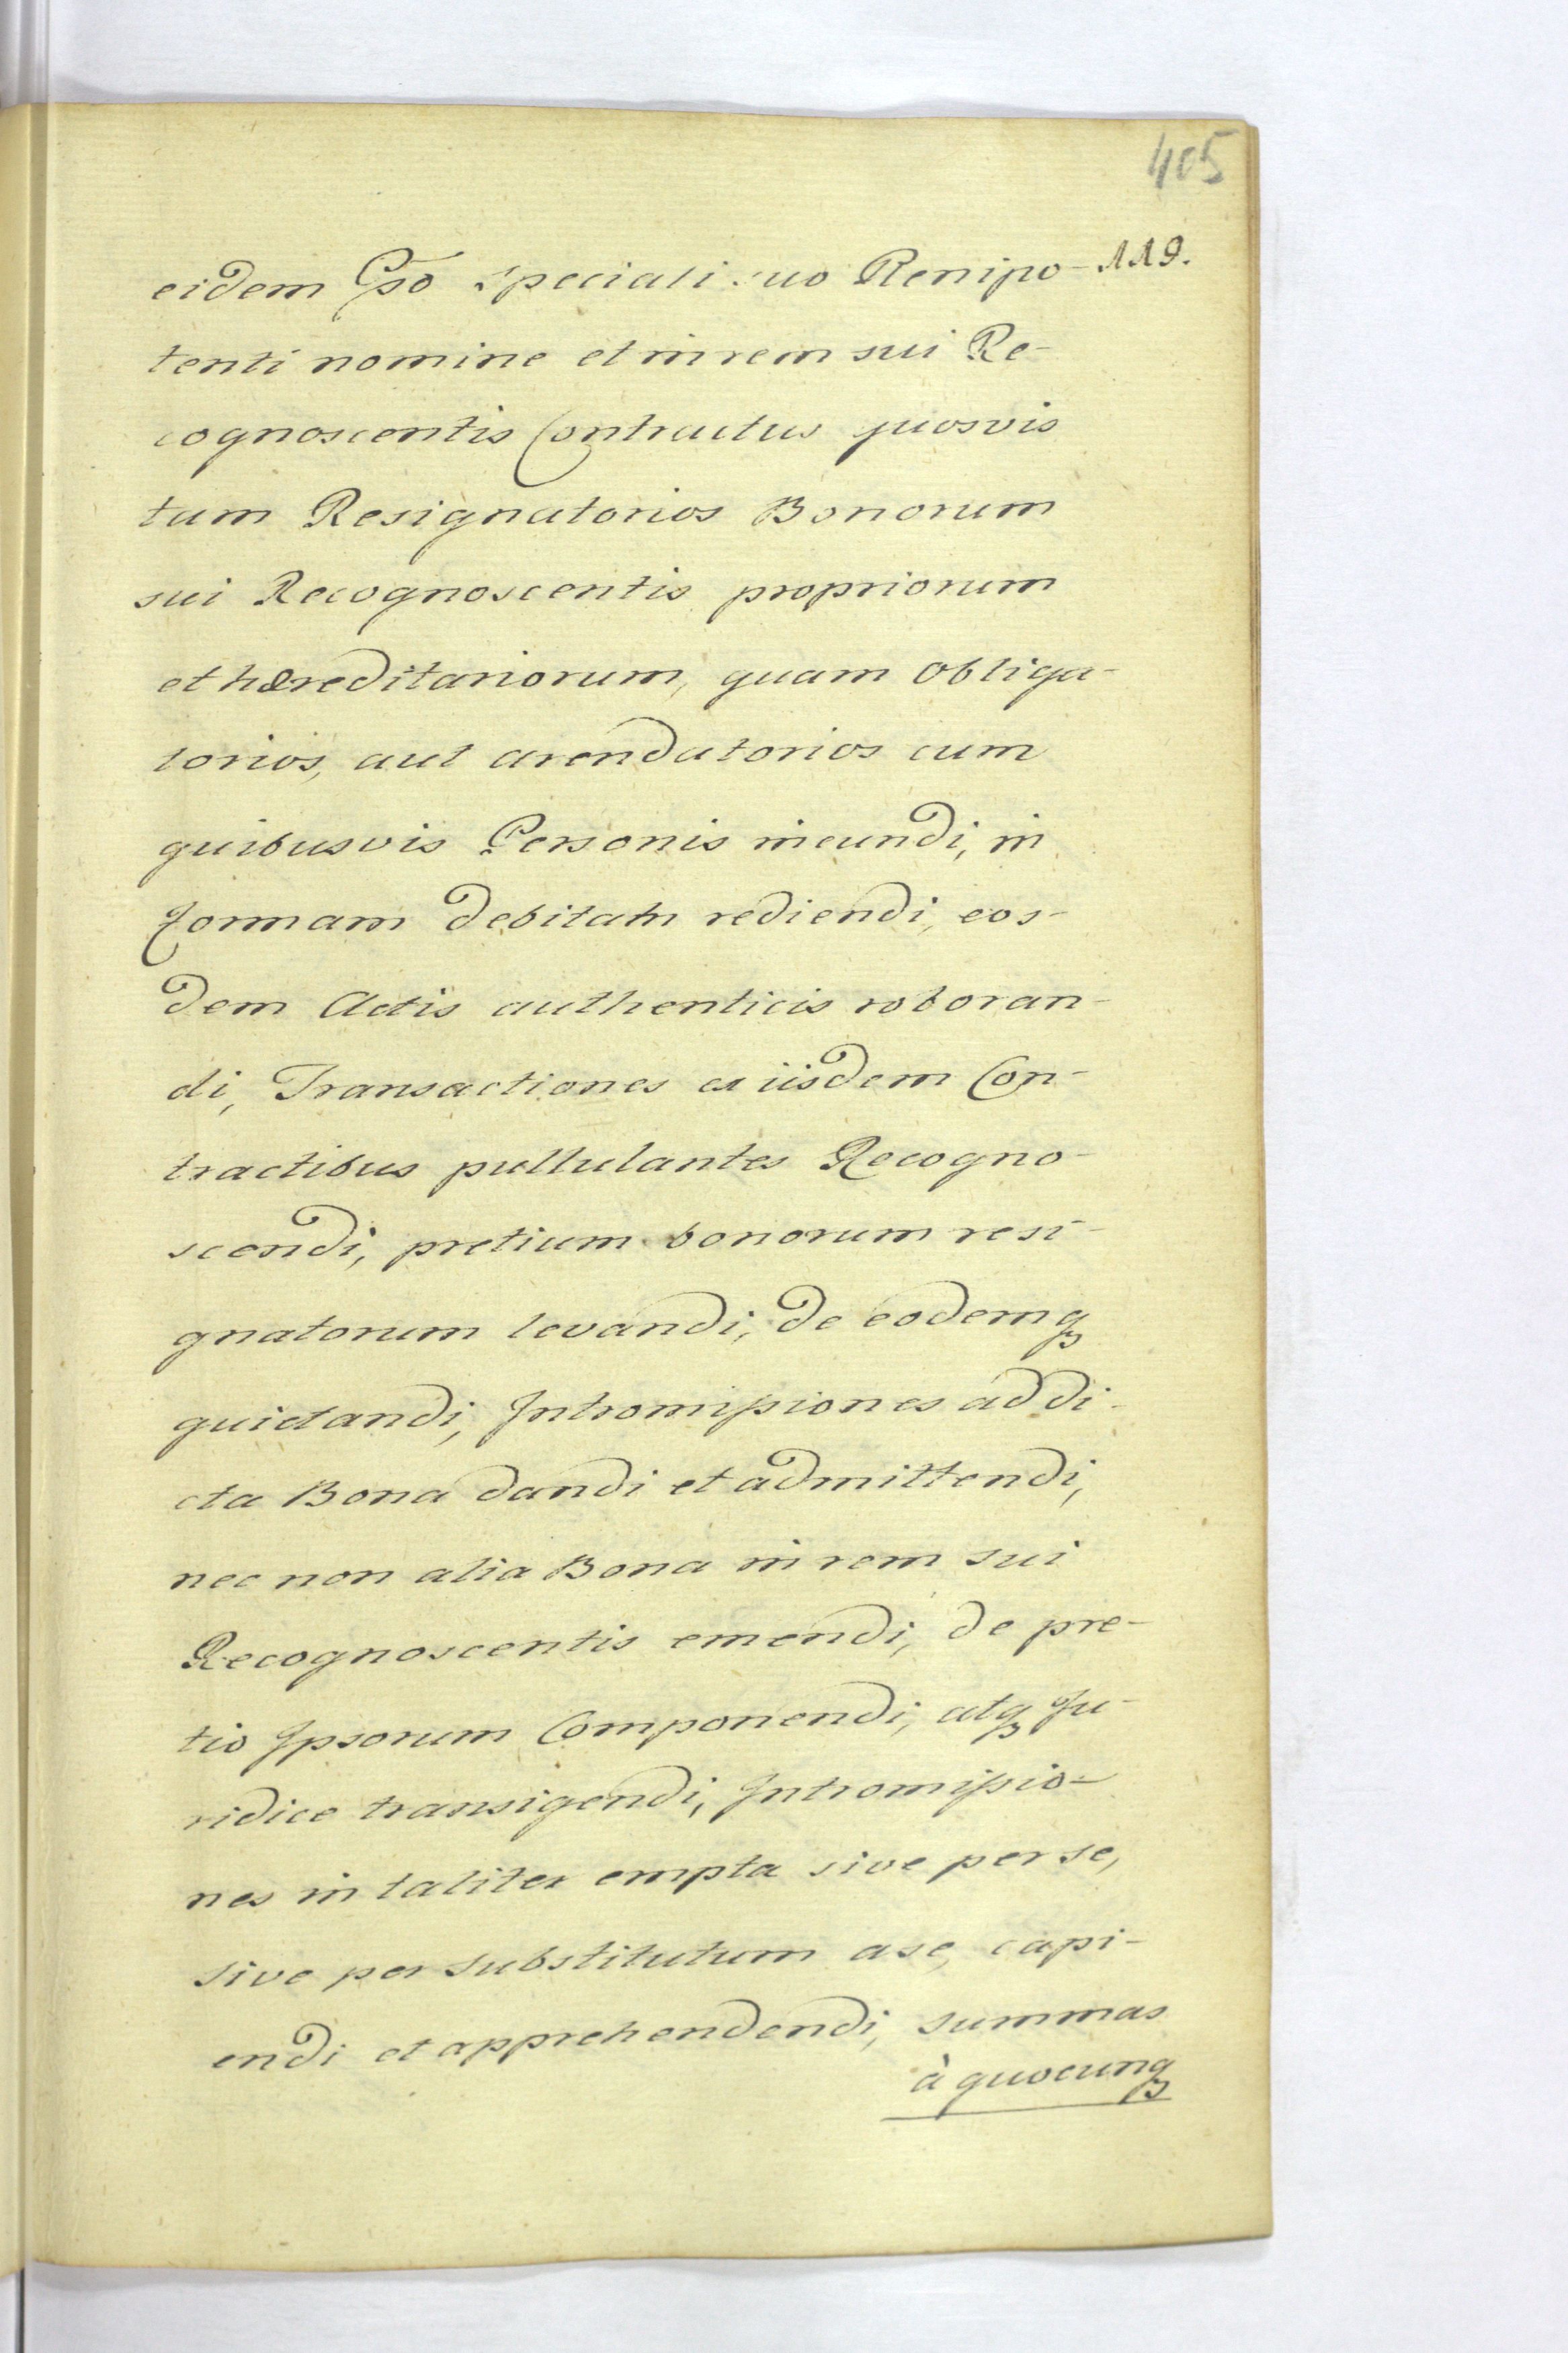 405
119.
eidem Gso speciali suo Plenipo-
tenti nomine et in rem sui Re-
cognoscentis Contractus quosvis
tam Resignatorios Bonorum
sui Recognoscentis propriorum
et hæreditariorum, quam obliga-
torios, aut arendatorios cum
quibusvis Personis ineundi, in
formam debitam rediendi, eos-
dem Actis authenticis roboran-
di, Transactiones ex iisdem Con-
tractibus pullulantes Recogno-
scendi, pretium bonorum resi-
gnatorum levandi, de eodemq
quietandi, Intromissiones ad di-
cta Bona dandi et admittendi,
nec non alia Bona in rem sui
Recognoscentis emendi, de pre-
tio Ipsorum Componendi, atq Ju-
ridice transigendi, Intromissio-
nes in taliter empta sive per se,
sive per substitutum a se, capi-
endi et apprehendendi, summas
à quocunq